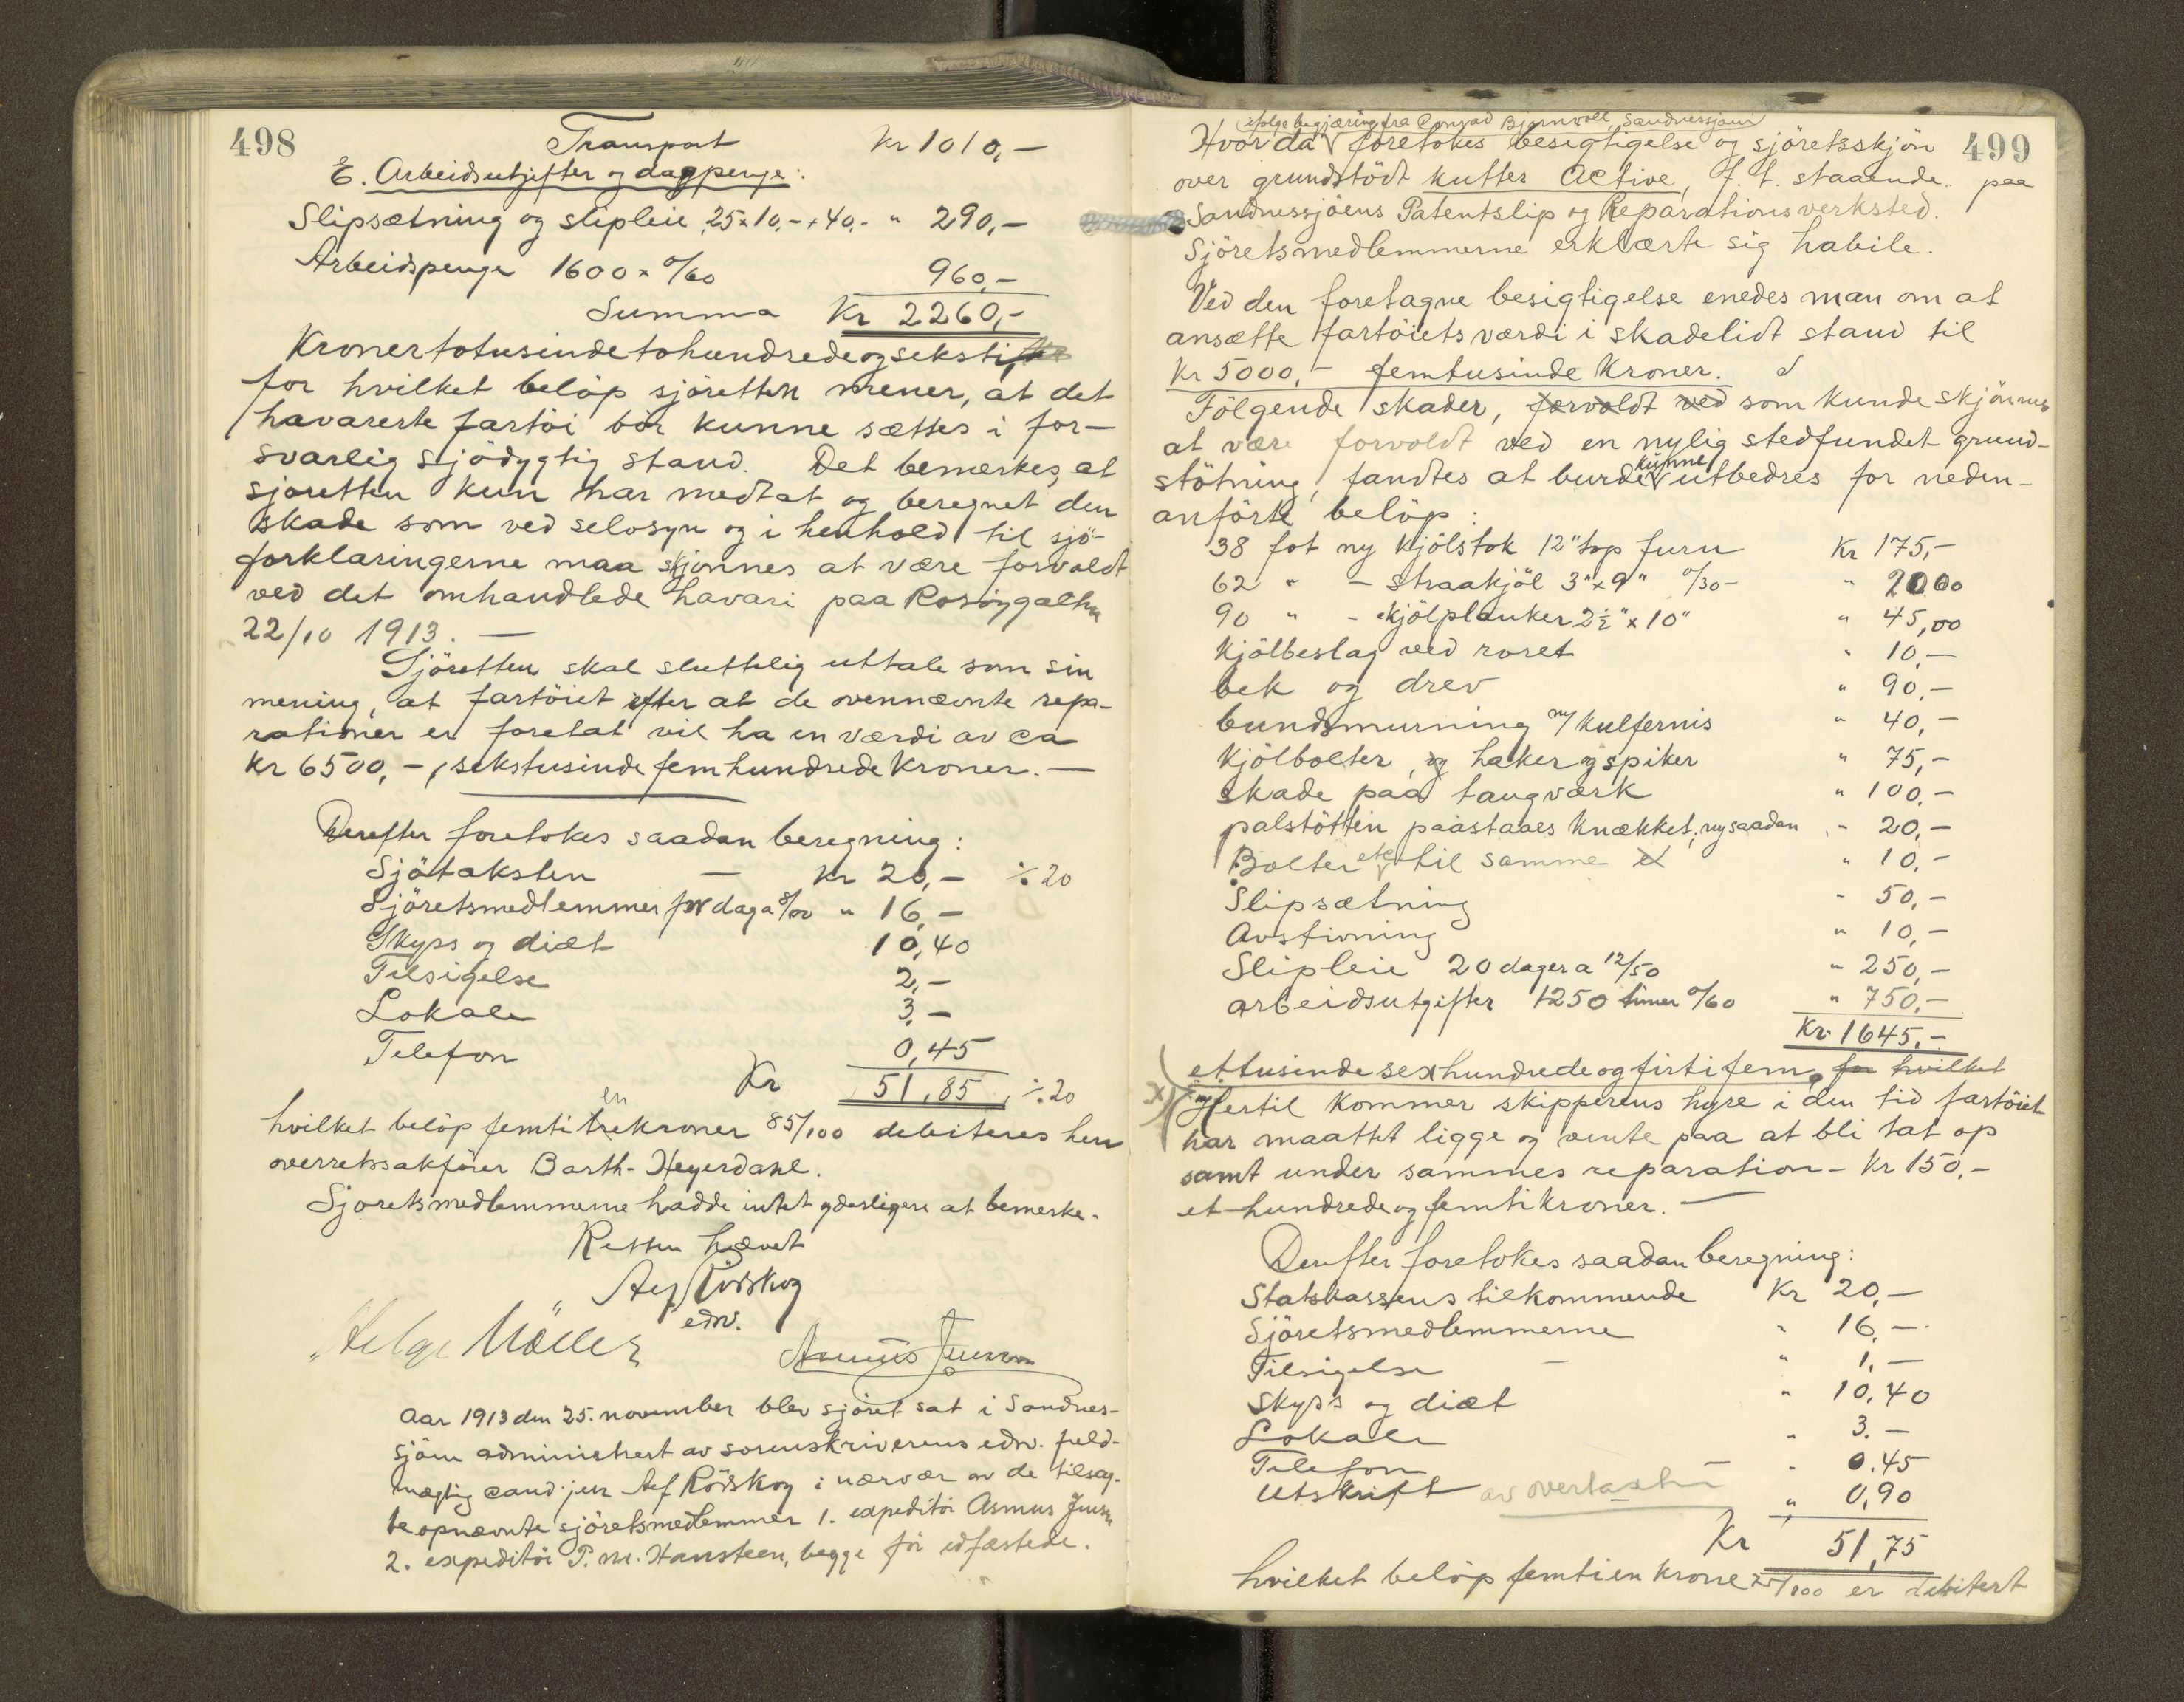 498
Transport Kr 1010,-
E. Arbeidsutgifter og dagpenge:
Slipsætning og slipleie 25 x 10,- + 40,- " 290,-
Arbeidspenge 1600 x 0/60 960,-
Summa Kr 2260,-
Kroner totusinde tohundrede og seksti
for hvilket beløp sjøretten mener, at det
havarerte fartøi bør kunne sættes i for-
svarlig sjødygtig stand. Det bemerkes, at
sjøretten kun har medtat og beregnet den
skade som ved selvsyn og i henhold til sjö-
forklaringerne maa skjønnes at være forvoldt
ved det omhandlede havari paa
22/10 1913. —
Sjøretten skal sluttelig uttale som sin
mening, at fartöiet efter at de ovennævnte repa-
rationer er foretat vil ha en værdi av ca
Kr 6500,-, sekstusinde femhundrede kroner. —
Derefter foretokes saadan beregning:
Sjötaksten — Kr 20,- ÷ 20
Sjöretsmedlemmer pr dag a 8/00 " 16,-
Skyss og diæt 10,40
Tilsigelse 2,-
Lokale 3,-
Telefon 0,45
Kr 51,85 ÷ 20
en
hvilket belöp femti tre kroner 85/100 debiteres herr
overretssakförer Barth-Heyerdahl.
Sjøretsmedlemmerne hadde intet yderligere at bemerke.
Retten hævet
Alf Rödskog
edv.
Helge Möller Asmus Jensen
Aar 1913 den 25. november blev sjöret sat i Sandnes-
sjöen administrert av sorenskriverens edv. fuld-
mægtig cand. jur Alf Rödskog i nærvær av de tilsag-
te opnævnte sjöretsmedlemmer 1. expeditör Asmus Jensen
2. expeditör P. M. Hansteen, begge för edfæstede.
499
ifölge begjæring fra Conrad Bjørnvoll, Sandnessjøen
Hvor da foretokes besigtigelse og sjöretsskjön
over grundstödt kutter Active, f. t. staaende paa
Sandnessjöens Patentslip og Reparationsverksted.
Sjöretsmedlemmerne erklærte sig habile.
Ved den foretagne besigtigelse enedes man om at
ansætte fartöiets værdi i skadelidt stand til
Kr 5000,- femtusinde Kroner.
Fölgende skader, forvoldt ved som kunde skjönnes
at være forvoldt ved en nylig stedfundet grund-
kunne
stötning, fandtes at burde utbedres for neden-
anförte belöp:
38 fot ny kjölstok 12" top furu Kr 175,-
62 " - straakjöl 3" x 9" 0/30 - " 20.00
90 " - kjölplanker 2½" x 10" " 45,00
Kjölbeslag ved roret " 10,-
bek og drev " 90,-
bundsmurning m/ kulfernis " 40,-
Kjölbolter, og haker og spiker " 75,-
skade paa taugværk " 100,-
palstötten paastaaes knækket, ny saadan - 20,-
Bolter etc til samme " 10,-
Slipsætning - 50,-
Avstivning " 10,-
Slipleie 20 dager a 12/50 " 250,-
arbeidsutgifter 1250 timer 0/60 " 750,-
Kr. 1645,-
ettusinde sexhundrede og firtifem, for hvilket
x) Hertil kommer skipperens hyre i den tid fartöiet
har maattet ligge og vente paa at bli tat op
samt under sammes reparation - Kr 150,-
et hundrede og femti kroner. —
Derefter foretokes saadan beregning:
Statskassens tilkommende Kr 20,-
Sjöretsmedlemmerne " 16,-
Tilsigelse — " 1,-
Skyss og diæt " 10,40
Lokale " 3.-
Telefon — " 0.45
Utskrift av overtaksten " 0,90
Kr 51,75
hvilket belöp femtien krone 75/100 er debitert